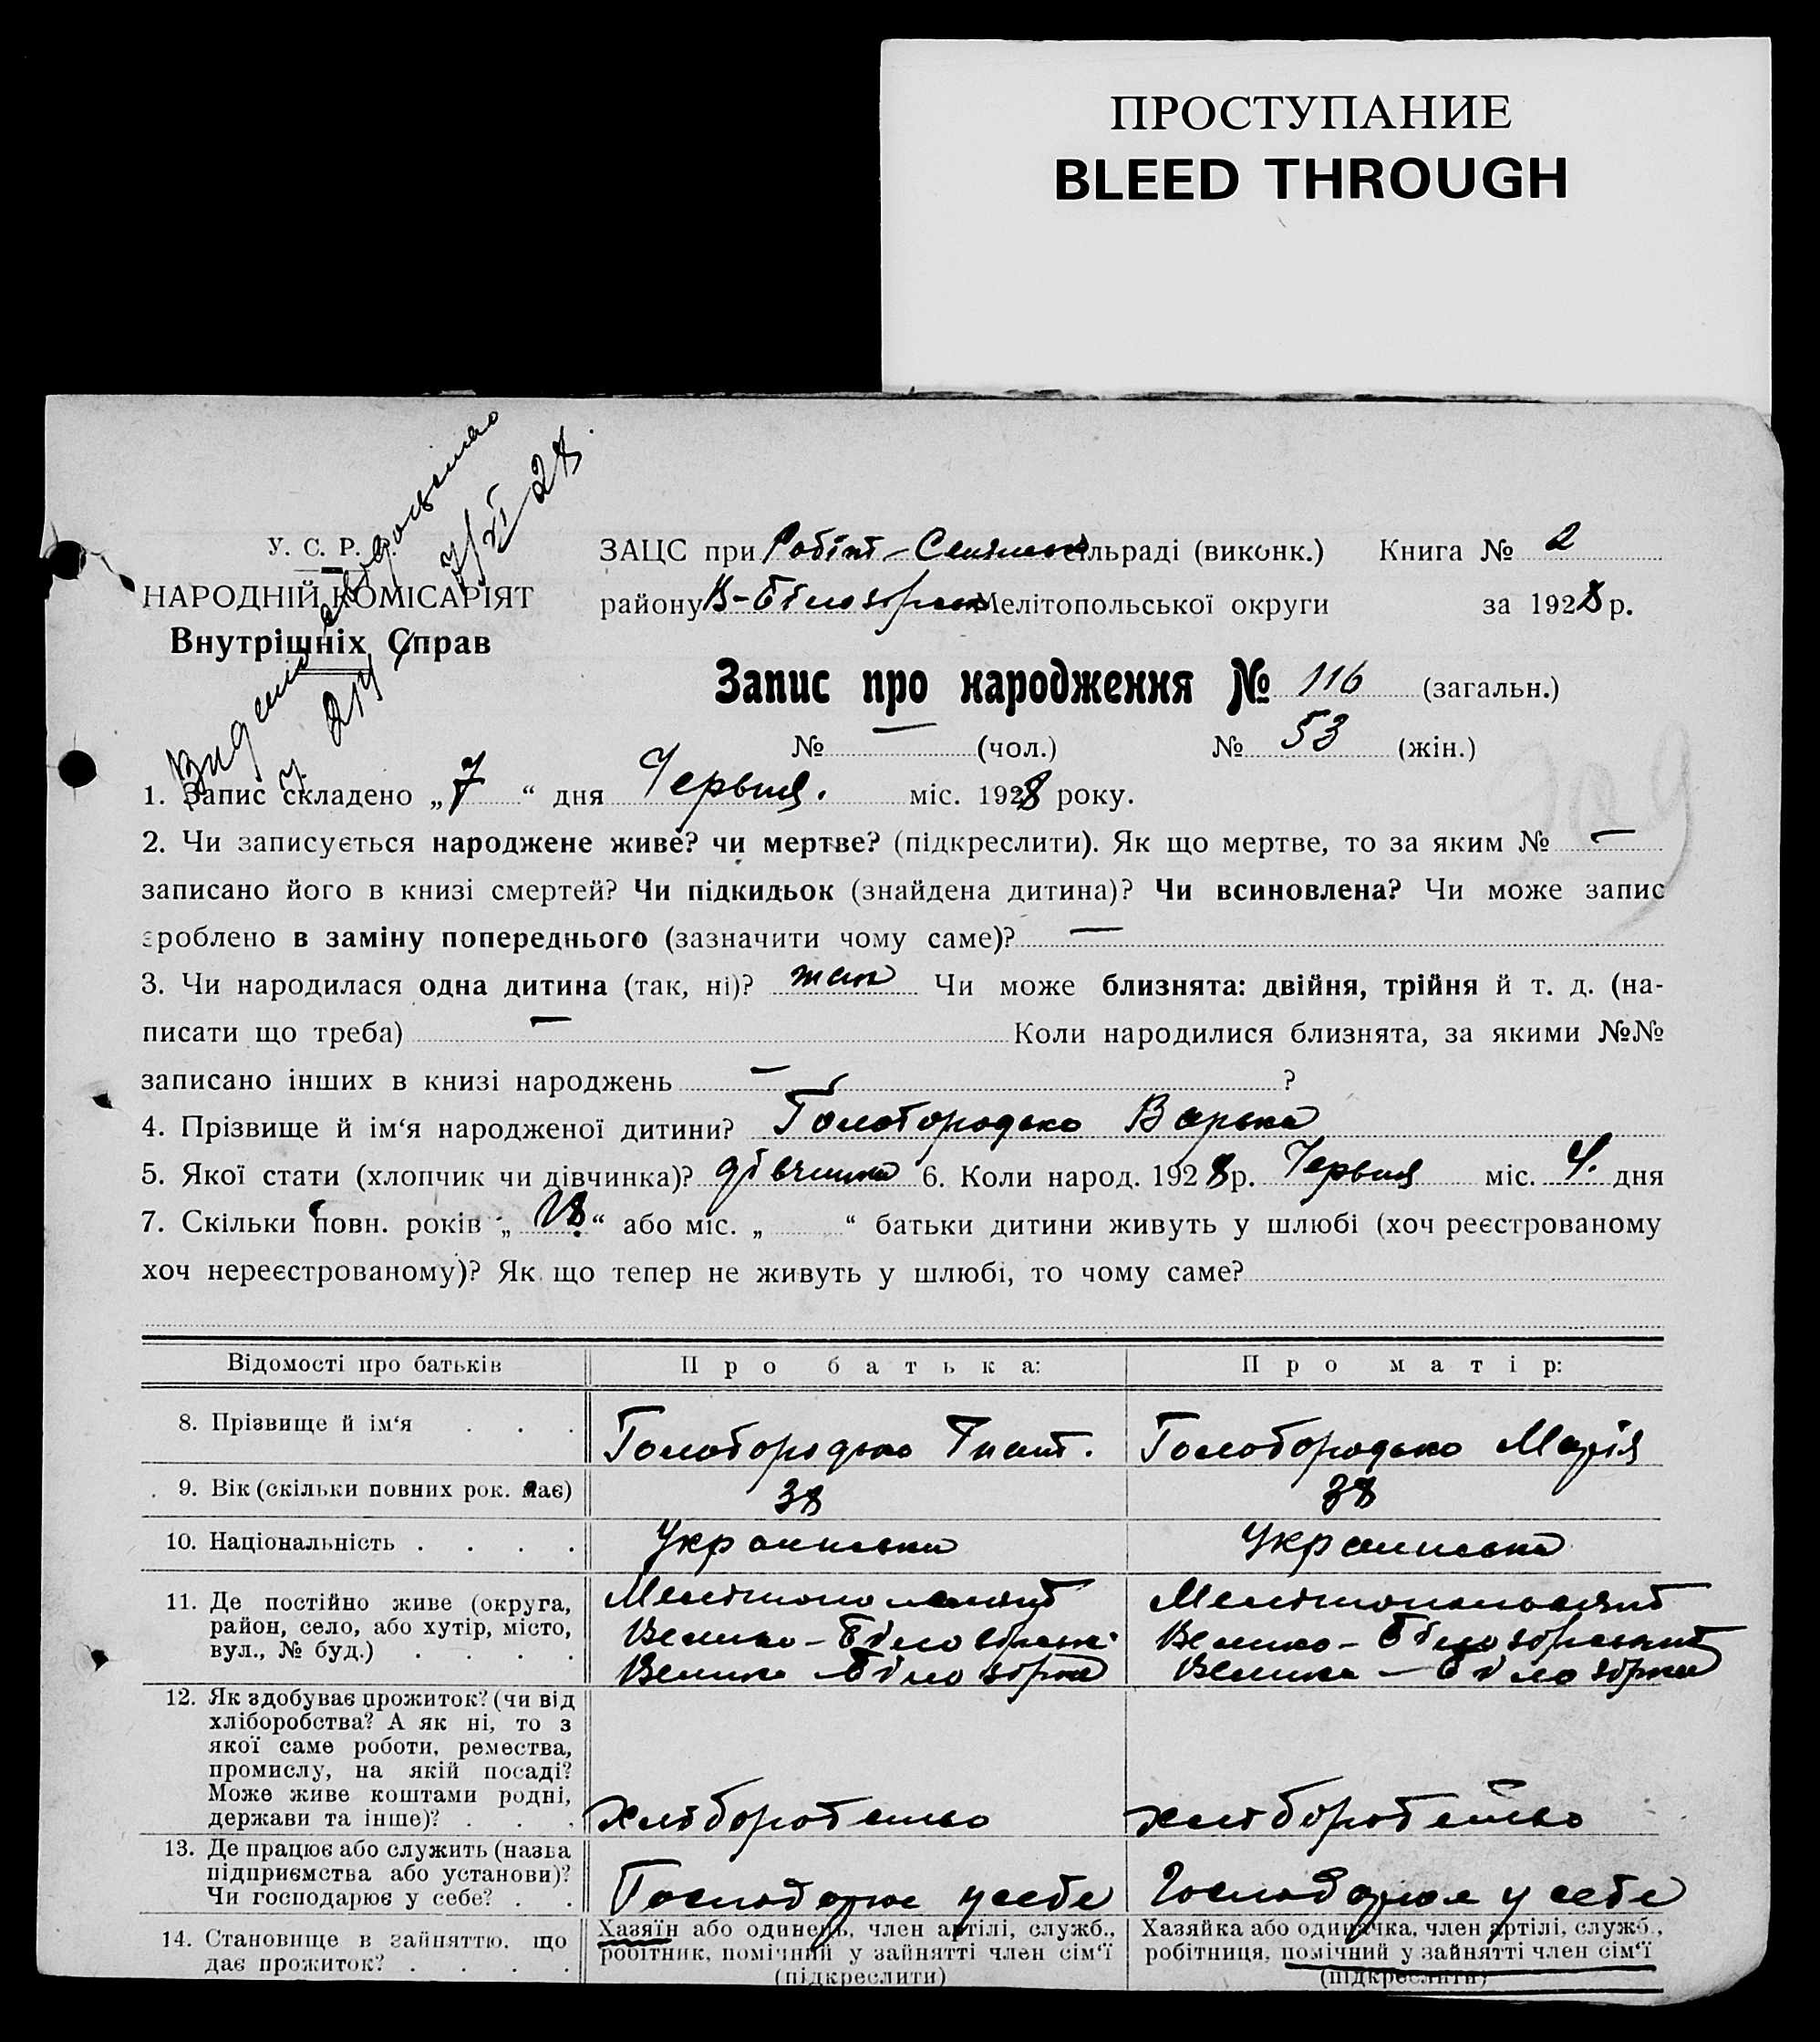 ПРОСТУПАНИЕ
BLEED THROUGH
У. С. Р. Р.
НАРОДНІЙ КОМІСАРІЯТ
Внутрішніх Справ
ЗАЦС при сільраді (виконк.) Книга № 2
району В-Білозірськ Мелітопольської округи за 1928 р.
Запис про народження № 116 (загальн.)
№ — (чол.) № 53 (жін.)
1. Запис складено „7“ дня Червня. міс. 1928 року.
2. Чи записується народжене живе? чи мертве? (підкреслити). Як що мертве, то за яким № —
записано його в книзі смертей? Чи підкидьок (знайдена дитина)? Чи всиновлена? Чи може запис
зроблено в заміну попереднього (зазначити чому саме)? —
3. Чи народилася одна дитина (так, ні)? так Чи може близнята: двійня, трійня й т. д. (на-
писати що треба) — Коли народилися близнята, за якими №№
записано інших в книзі народжень — ?
4. Прізвище й ім‘я народженої дитини? Голобородько Варька
5. Якої стати (хлопчик чи дівчинка)? дівчинка 6. Коли народ. 1928 р. Червня міс. 4. дня
7. Скільки повн. років „18“ або міс. „ “ батьки дитини живуть у шлюбі (хоч реєстрованому
хоч нереєстрованому)? Як що тепер не живуть у шлюбі, то чому саме?
Відомості про батьків Про батька: Про матір:
8. Прізвище й ім‘я . . . Голобородько Гнат. Голобородько Марія
9. Вік (скільки повних рок. має) 38 38
10. Національність . . . . Украинська Украинська
11. Де постійно живе (округа,
район, село, або хутір, місто,
вул., № буд.) . . . .
Велико-Білозірськ.
Велика-Білозірка Велика-Білозірка
12. Як здобуває прожиток? (чи від
хліборобства? А як ні, то з
якої саме роботи, ремества,
промислу, на якій посаді?
Може живе коштами родні,
держави та інше)? . . . Хліборобство хліборобство
13. Де працює або служить (назва
підприємства або установи)?
Чи господарює у себе? . . Господарює у себе Господарює у себе
14. Становище в зайняттю, що
дає прожиток? . . . .
Хазяїн або одинець, член артілі, служб.,
робітник, помічний у зайнятті член сім‘ї
(підкреслити)
Хазяйка або одиначка, член артілі, служб.,
робітниця, помічний у зайнятті член сім‘ї
(підкреслити)